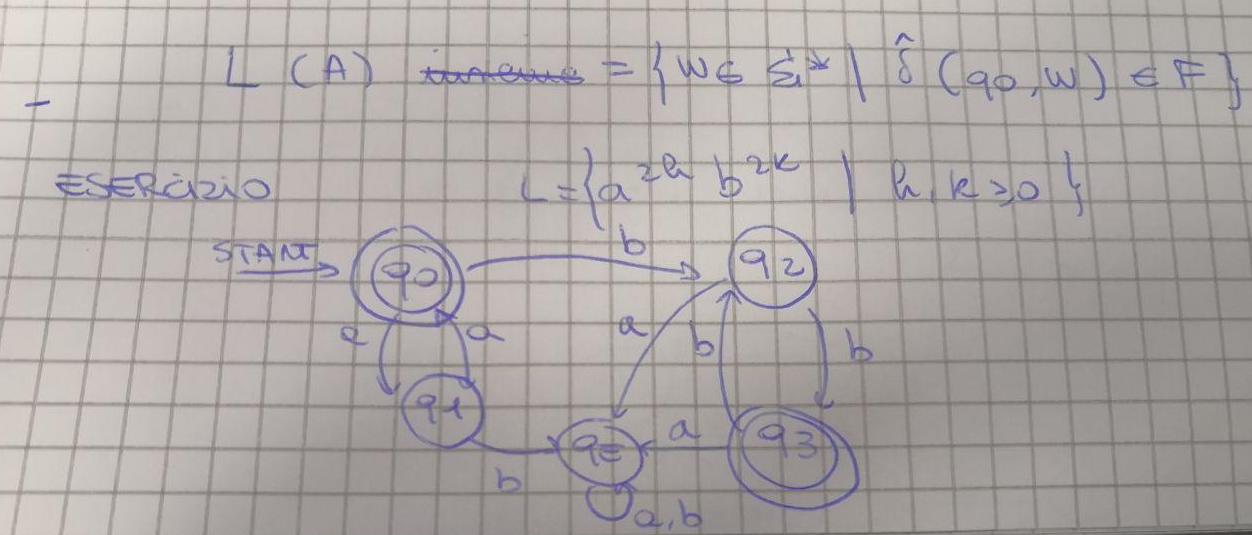 L (A) = { w ∈ Σ* | δ̂ (q0, w) ∈ F }
ESERCIZIO L = { a^2h b^2k | h, k ≥ 0 }
START q0 b q2
a a a b b
q1 a q3
b
a, b